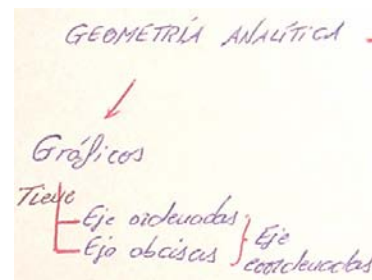 GEOMETRÍA ANALÍTICA
Gráficos
Tiene
Eje ordenadas
Ejo abcisas
Eje
coordenadas